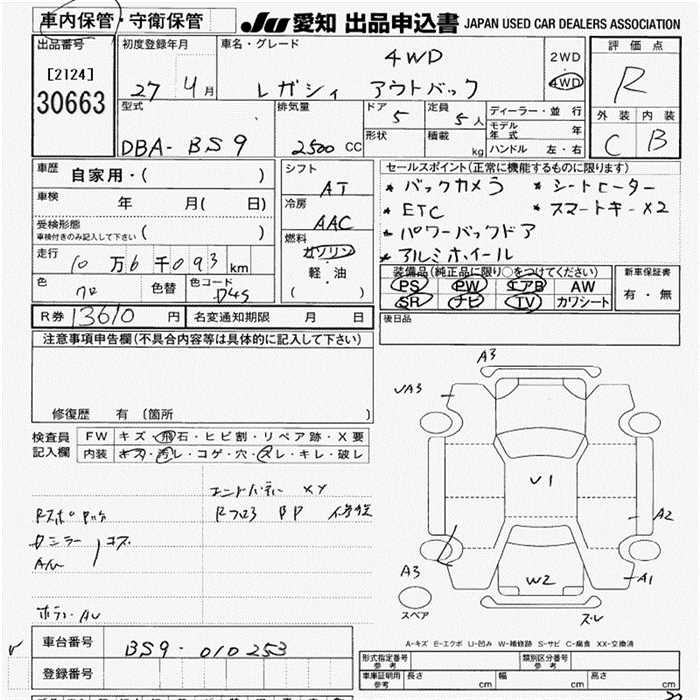 車内保管・守衛保管 JU 愛知 出品申込書 JAPAN USED CAR DEALERS ASSOCIATION
出品番号 初度登録年月 車名・グレード 4WD 2WD 評価点
[2124] 27 4月 レガシィ アウトバック 4WD R
30663 型式 排気量 ドア 5 定員 5人 ディーラー・並行 外装 内装
DBA-BS9 2500 CC 形状 積載 kg モデル年式 年 C B
ハンドル 左・右
車歴 自家用・( ) シフト AT セールスポイント(正常に機能するものに限ります)
車検 年 月( 日) 冷房 AAC * バックカメラ * シートヒーター
受検形態 ( ) * ETC * スマートキーX2
車検付きのみ記入して下さい 燃料 * パワーバックドア
走行 10万6千093km ガソリン * アルミホイール
色 クロ 色替 色コード D4S 軽・油 装備品(純正品に限り○をつけてください) 新車保証書
( ) PS PW エアB AW 有・無
SR ナビ TV カワシート
R券 13610円 名変通知期限 月 日 後日品
注意事項申告欄(不具合内容等は具体的に記入して下さい)
修復歴 有(箇所 )
検査員 FW キズ・飛石・ヒビ割・リペア跡・X要
記入欄 内装 キズ・汚レ・コゲ・穴・スレ・キレ・破レ
XX
A3
JA3
U1
A2
A3
W2
A1
スペア
ズレ
A-キズ E-エクボ U-凹み W-補修跡 S-サビ C-腐食 XX-交換済
車台番号 BS9-010253
登録番号
形式指定番号 参考 類別区分番号 参考
車庫証明用 参考 長さ cm 幅 cm 高さ cm